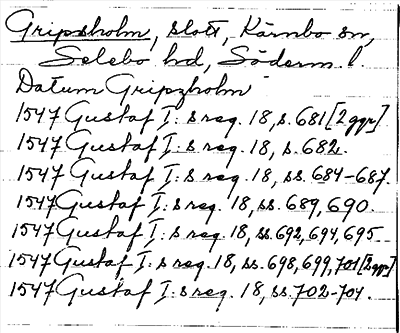 Gripsholm, slott, Kärnbo sn,
Selebo hd, Söderm l.
Datum Gripzholm
1547 Gustaf I:s reg. 18, s. 681 [2 ggr].
1547 Gustaf I:s reg. 18, s. 682.
1547 Gustaf I:s reg. 18, ss. 684-687.
1547 Gustaf I:s reg. 18, ss. 689, 690.
1547 Gustaf I:s reg. 18, ss. 692, 694, 695
1547 Gustaf I:s reg. 18, ss. 698, 699, 701 [2 ggr]
1547 Gustaf I:s reg. 18, ss. 702-704.